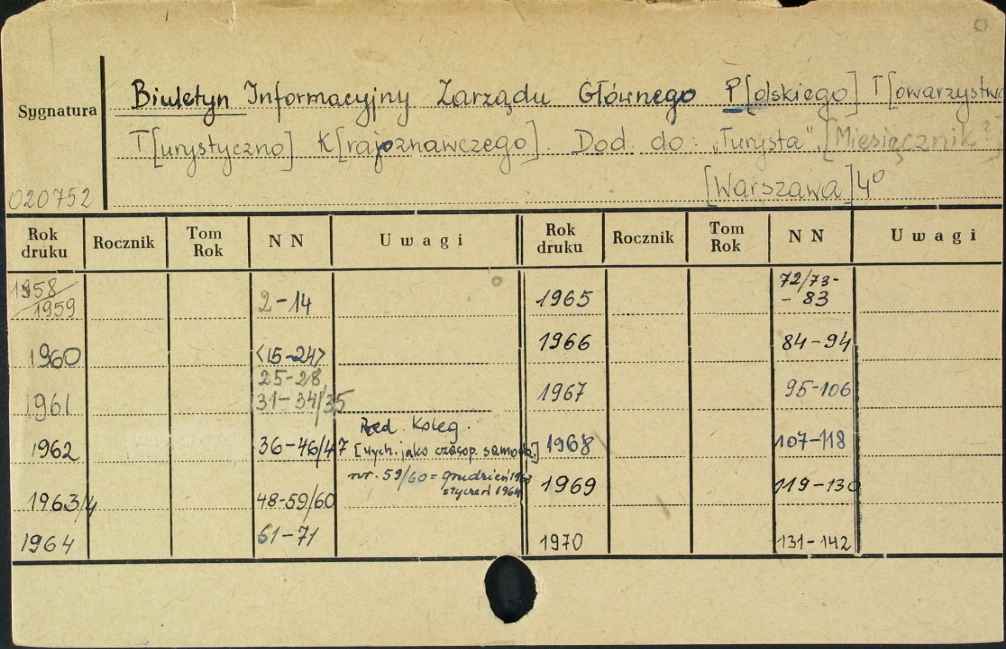 Sygnatura
020752
Biuletyn Informacyjny Zarządu Głównego P[olskiego] T[owarzystwa
T[urystyczno] K[rajoznawczego]. Dod. do: „Turysta”. [Miesięcznik?]
[Warszawa] 4°
Rok druku Rocznik Tom Rok NN Uwagi Rok druku Rocznik Tom Rok NN Uwagi
1958/1959 2-14 1965 72/73-
-83
1960 <15-24> 1966 84-94
25-28
1961 31-34/35 1967 95-106
Red. Koleg.
1962 36-46/47 [wych. jako czasop. samodz.] 1968 107-118
nr. 59/60 = grudzień 1963
styczeń 1964
1963/4 48-59/60 1969 119-130
1964 61-71 1970 131-142